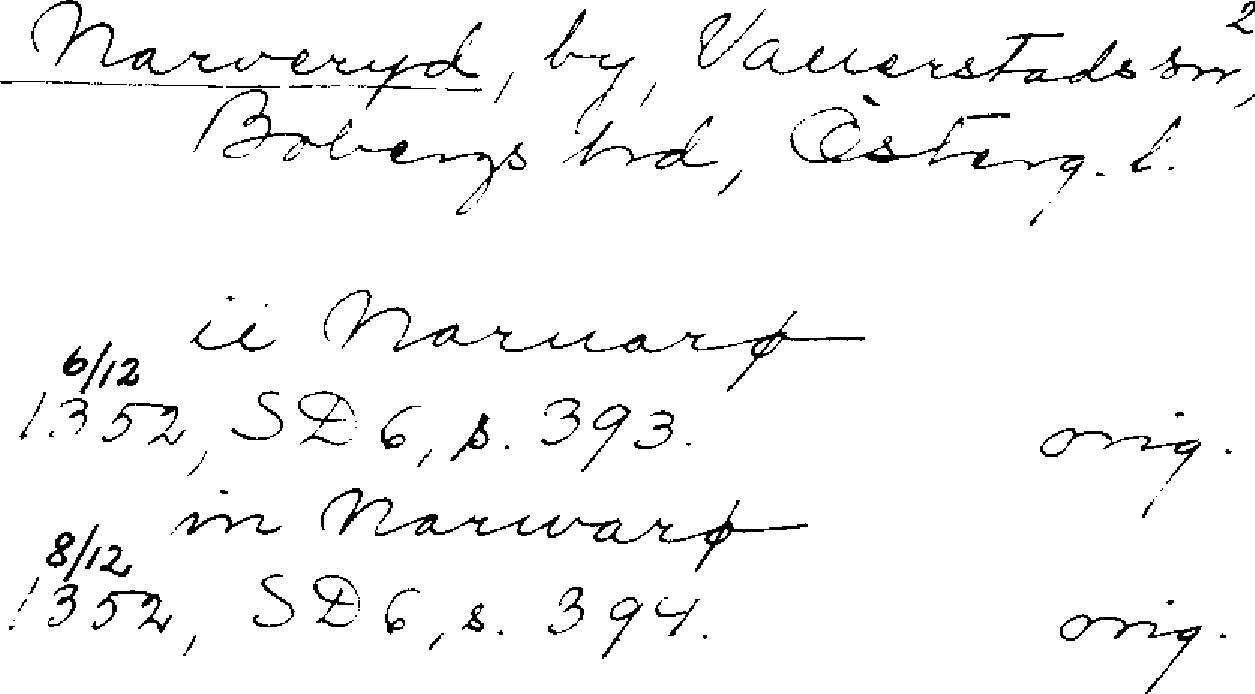 2
Narveryd, by, Vallerstads sn,
Bobergs hd, Österg. l.
ii Naruarø
6/12
1352, SD 6, s. 393. orig.
in Narwarø
8/12
1352, SD 6, s. 394. orig.